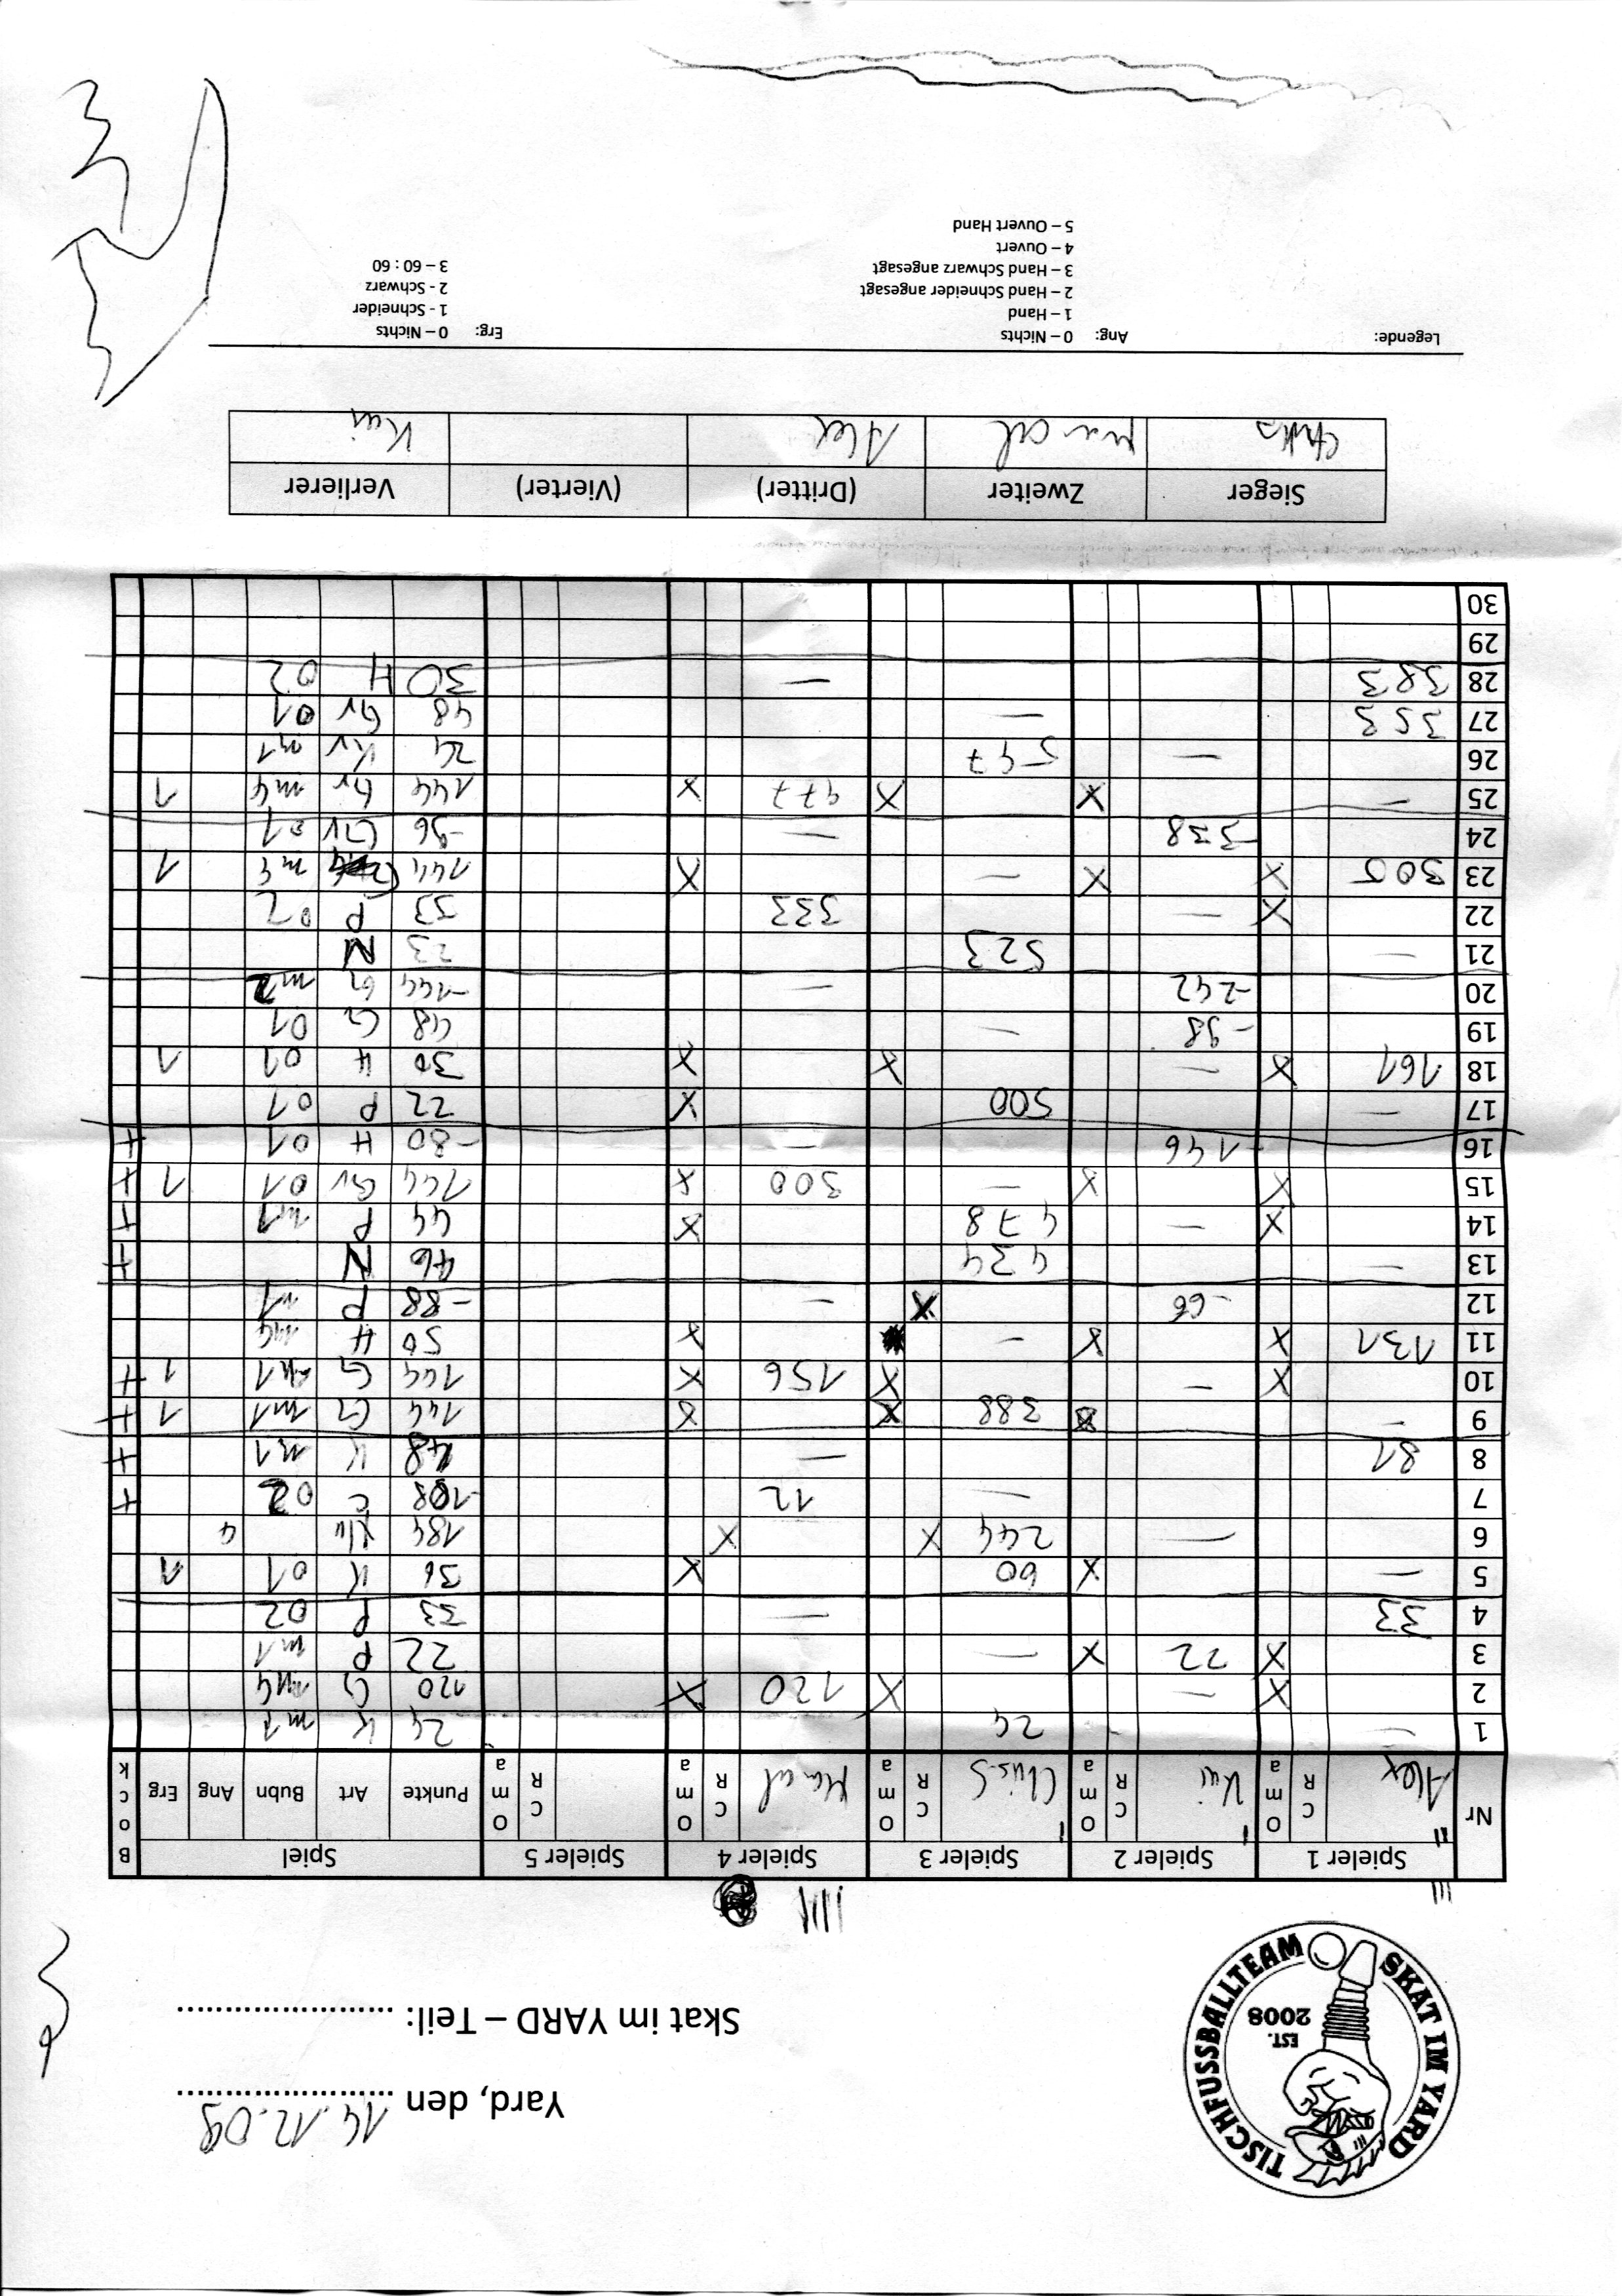 Yard, den 14.12.09
Skat im YARD – Teil: ........................
TISCHFUSSBALLTEAM SKAT IM YARD
EST. 2008
Nr Spieler 1 Spieler 2 Spieler 3 Spieler 4 Spieler 5 Spiel Bock
Alex RC Oma Kai RC Oma Chris.S RC Oma Marcel RC Oma RC Oma Punkte Art Bubn Ang Erg
1 – 24 24 K m1
2 X – X 120 X 120 G m4
3 X 22 X – 22 P m1
4 33 – 33 P 02
5 – X 60 X 36 K 01 1
6 – 244 X X 184 4
7 – 12 -108 02 +
8 81 – 48 K m1 +
9 – X 388 X X 144 G m1 1 +
10 X – X 156 X 144 G m1 1 +
11 131 X X – X 50 H m4
12 -66 X – -88 P m1
13 – 434 46 N +
14 X – 478 X 44 P m1 +
15 X X – 300 X 144 Gv 01 1 +
16 -146 – -80 H 01 +
17 – 500 X 22 P 01
18 161 X – X X 30 H 01 1
19 -98 – 48 G 01
20 -242 – -144 G m2
21 – 523 23 N
22 X – 333 33 P 02
23 305 X X – X 144 m4 1
24 -338 – -96 Gv 01
25 – X X 477 X 144 Gv m4 1
26 – 547 24 Kv m1
27 353 – 48 Gv 01
28 383 – 30 H 02
29
30
Sieger Zweiter (Dritter) (Vierter) Verlierer
Chris Marcel Alex Kai
Legende: Ang: 0 – Nichts Erg: 0 – Nichts
1 – Hand 1 - Schneider
2 – Hand Schneider angesagt 2 - Schwarz
3 – Hand Schwarz angesagt 3 – 60 : 60
4 – Ouvert
5 – Ouvert Hand